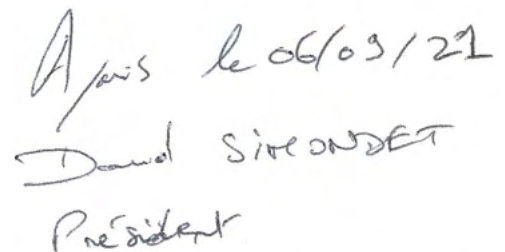 A Paris le 06/09/21
David SIMONDET
Président